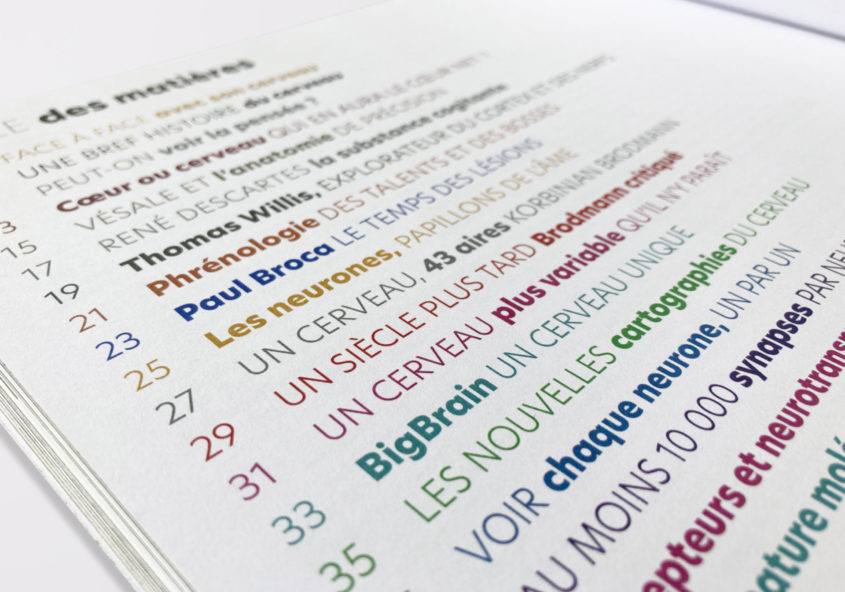 des matières
FACE À FACE avec son cerveau
UNE BREF HISTOIRE du cerveau
PEUT-ON voir la pensée ?
3 Cœur ou cerveau QUI EN AURA LE CŒUR NET ?
15 VÉSALE ET l'anatomie DE PRÉCISION
17 RENÉ DESCARTES la substance cogitante
19 Thomas Willis, EXPLORATEUR DU CORTEX ET DES NERFS
21 Phrénologie DES TALENTS ET DES BOSSES
23 Paul Broca LE TEMPS DES LÉSIONS
25 Les neurones, PAPILLONS DE L'ÂME
27 UN CERVEAU, 43 aires KORBINIAN BRODMANN
29 UN SIÈCLE PLUS TARD Brodmann critiqué
31 UN CERVEAU plus variable QU'IL N'Y PARAÎT
33 BigBrain UN CERVEAU UNIQUE
35 LES NOUVELLES cartographies DU CERVEAU
VOIR chaque neurone, UN PAR UN
AU MOINS 10 000 synapses PAR NEU
epteurs et neurotransm
ature molé